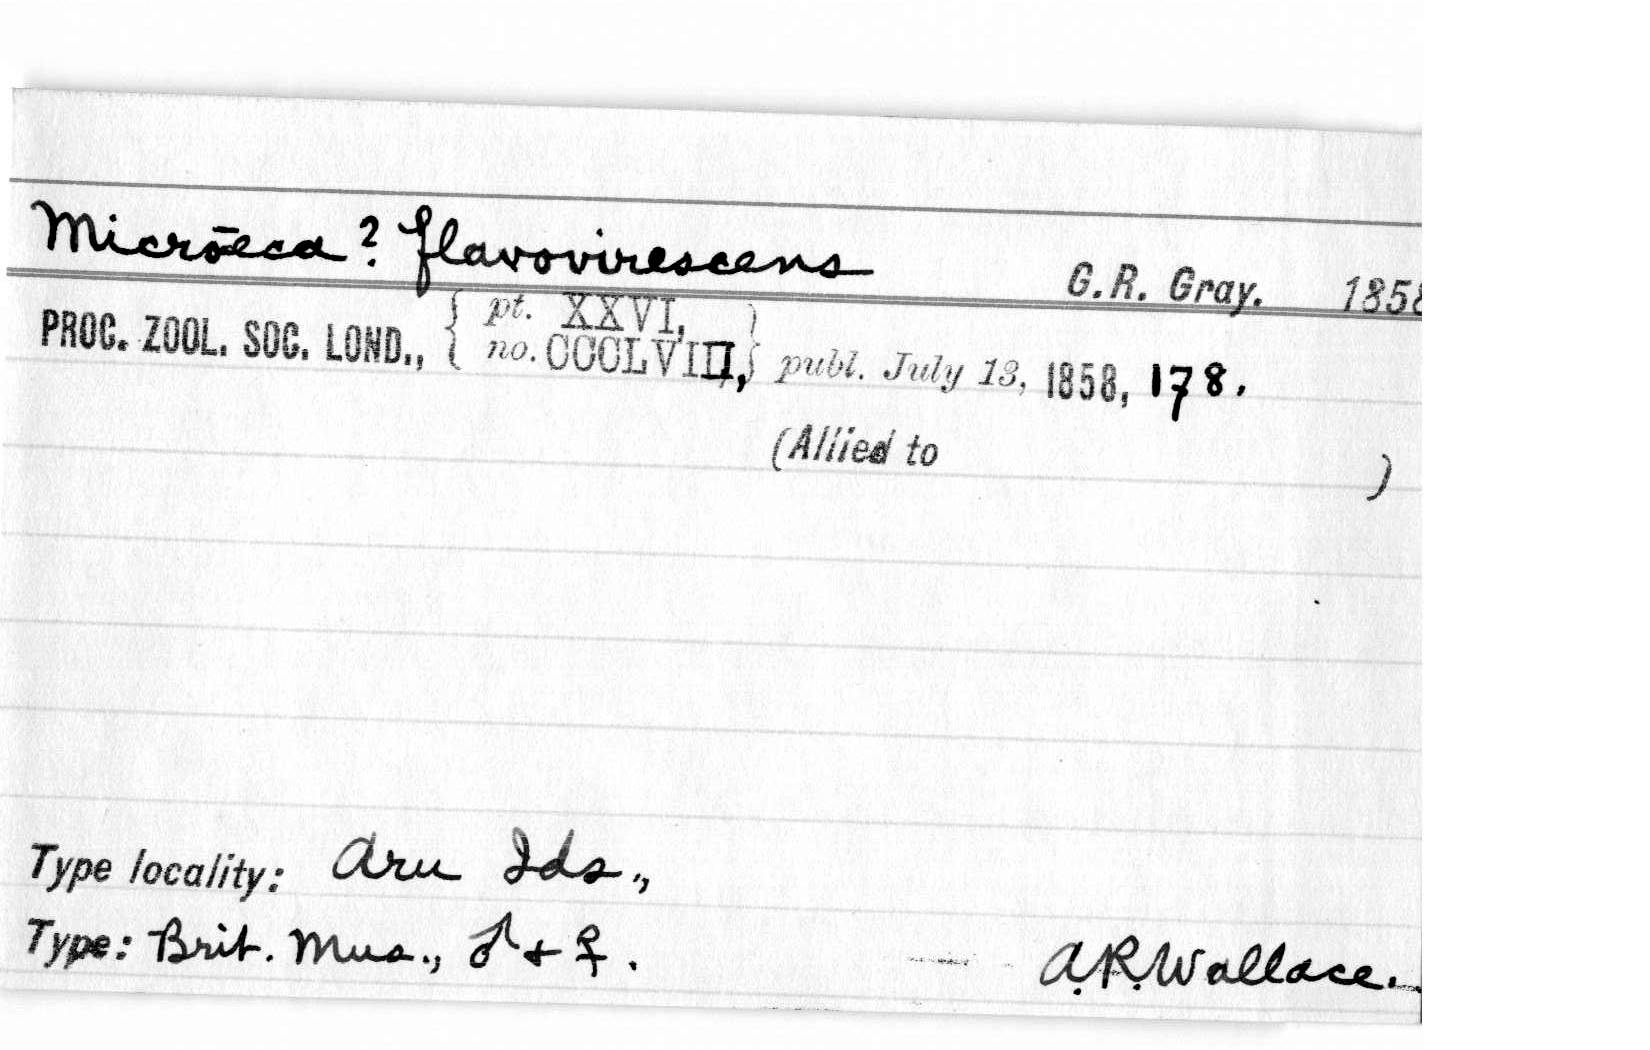 Microēca? flavovirescens G.R. Gray. 1858
PROC. ZOOL. SOC. LOND., { pt. XXVI, no. CCCLVIII, } publ. July 13, 1858, 178.
(Allied to )
Type locality: Aru Ids.,
Type: Brit. Mus., ♂ + ♀. A.R. Wallace.